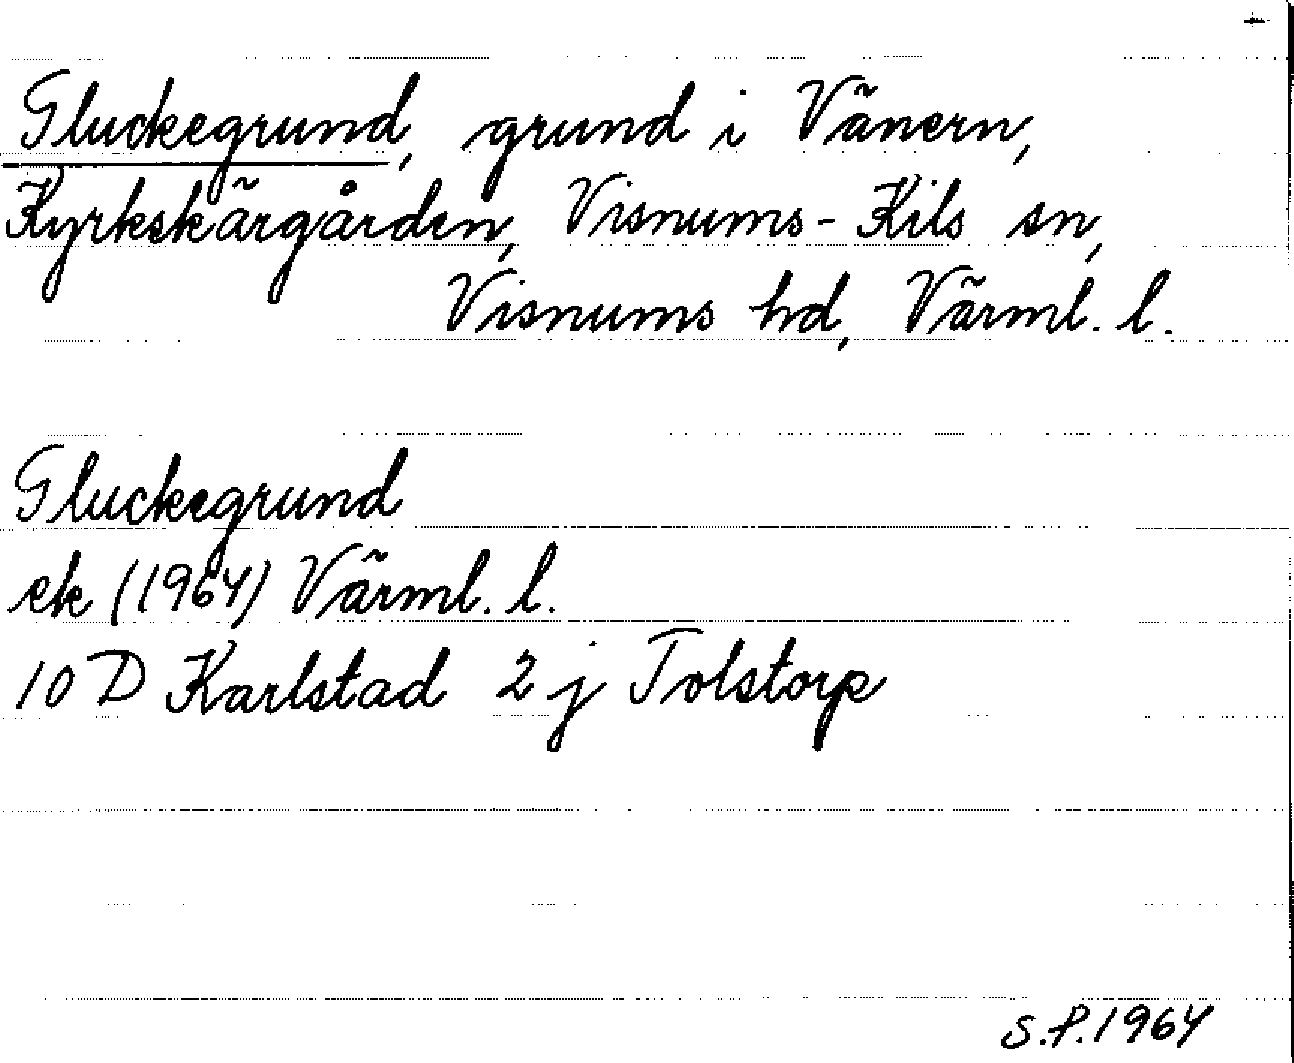 Gluckegrund, grund i Vänern,
Kyrkskärgården, Visnums-Kils sn,
Visnums hd, Värml. l.
Gluckegrund
ek (1964) Värml. l.
10 D Karlstad 2 j Tolstorp
S.P. 1964